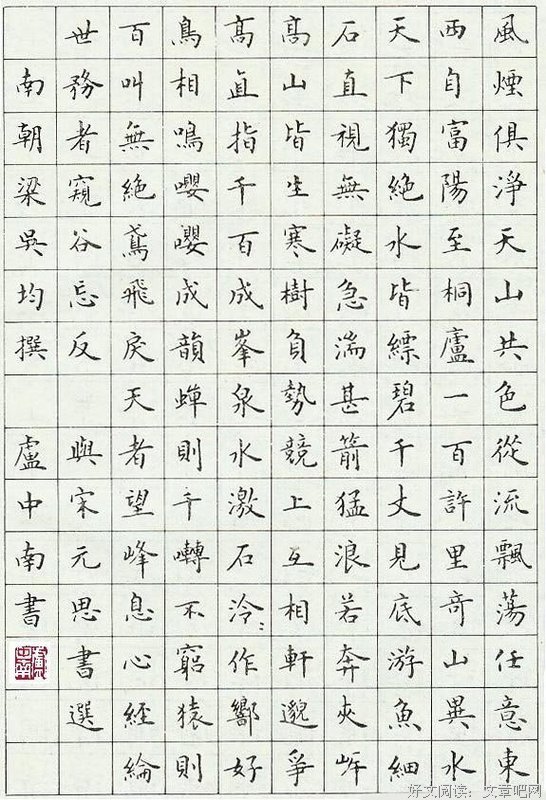 風煙俱淨天山共色從流飄蕩任意東
西自富陽至桐廬一百許里奇山異水
天下獨絶水皆縹碧千丈見底游魚細
石直視無礙急湍甚箭猛浪若奔夾岸
高山皆生寒樹負勢競上互相軒邈爭
高直指千百成峯泉水激石泠〻作嚮好
鳥相鳴嚶嚶成韻蟬則千囀不窮猿則
百叫無絶鳶飛戾天者望峰息心經綸
世務者窺谷忘反 與宋元思書選
南朝梁吳均撰 盧中南書
好文阅读：文章吧网